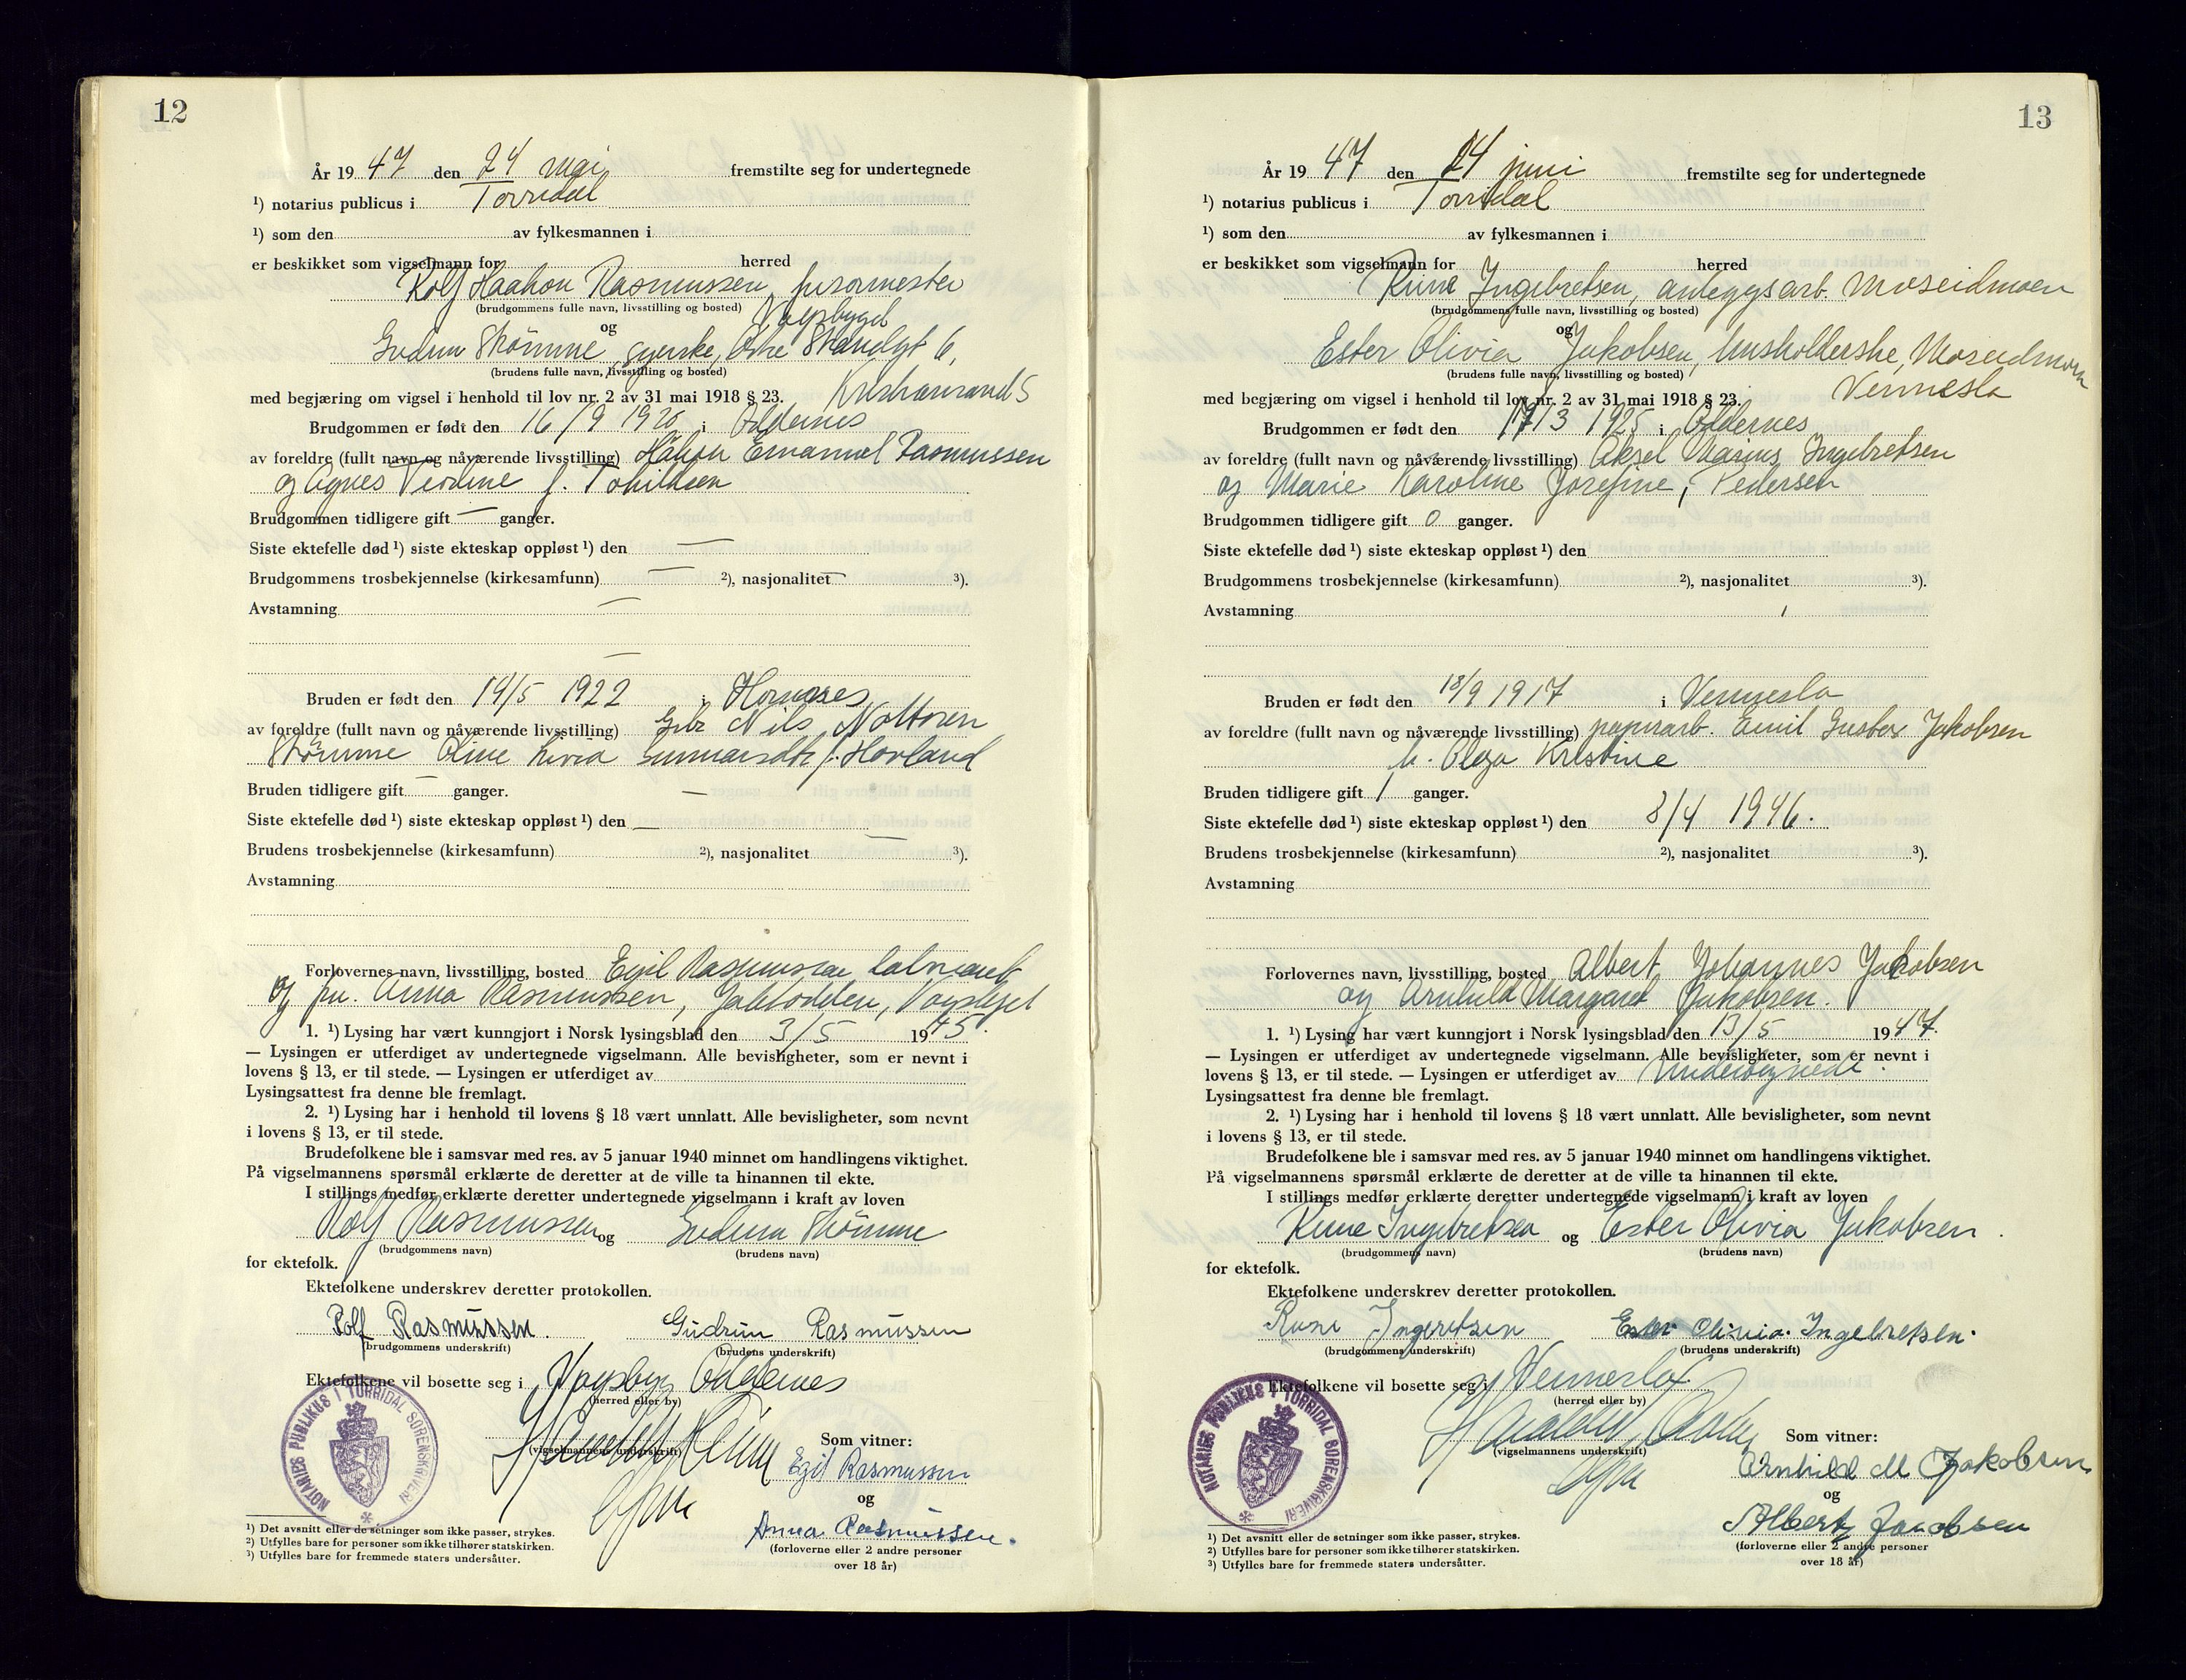 12
År 1947 den 24 mai fremstilte seg for undertegnede
¹) notarius publicus i Torridal
¹) som den av fylkesmannen i
er beskikket som vigselmann for herred
Rolf Haakon Rasmussen,
(brudgommens fulle navn, livsstilling og bosted)
og
Gudrun Strømme, syerske, Østre Strandgt 6,
(brudens fulle navn, livsstilling og bosted)
Kristiansand S
med begjæring om vigsel i henhold til lov nr. 2 av 31 mai 1918 § 23.
Brudgommen er født den 16/9 1920 i Oddernes
av foreldre (fullt navn og nåværende livsstilling) Håkon Emanuel Rasmussen
og Agnes f.
Brudgommen tidligere gift — ganger.
Siste ektefelle død ¹) siste ekteskap oppløst ¹) den —
Brudgommens trosbekjennelse (kirkesamfunn) — ²), nasjonalitet — ³).
Avstamning —
—
Bruden er født den 14/5 1922 i Hornnes
av foreldre (fullt navn og nåværende livsstilling) Gbr. Nils
Strømme Oline f. Hovland
Bruden tidligere gift — ganger. —
Siste ektefelle død ¹) siste ekteskap oppløst ¹) den —
Brudens trosbekjennelse (kirkesamfunn) ²), nasjonalitet — ³).
Avstamning
Forlovernes navn, livsstilling, bosted Egil Rasmussen
og fru Anna Rasmussen,
1. ¹) Lysing har vært kunngjort i Norsk lysingsblad den 3/5 1945.
— Lysingen er utferdiget av undertegnede vigselmann. Alle bevisligheter, som er nevnt i
lovens § 13, er til stede. — Lysingen er utferdiget av
Lysingsattest fra denne ble fremlagt.
2. ¹) Lysing har i henhold til lovens § 18 vært unnlatt. Alle bevisligheter, som nevnt
i lovens § 13, er til stede.
Brudefolkene ble i samsvar med res. av 5 januar 1940 minnet om handlingens viktighet.
På vigselmannens spørsmål erklærte de deretter at de ville ta hinannen til ekte.
I stillings medfør erklærte deretter undertegnede vigselmann i kraft av loven
Rolf Rasmussen og Gudrun Strømme
(brudgommens navn) (brudens navn)
for ektefolk.
Ektefolkene underskrev deretter protokollen.
Rolf Rasmussen. Gudrun Rasmussen
(brudgommens underskrift) (brudens underskrift)
Ektefolkene vil bosette seg i Vågsbyg Oddernes
(herred eller by)
(vigselmannens underskrift)
NOTARIES PUBLIKUS I TORRIDAL SORENSKRIVERI
Som vitner:
Egil Rasmussen
og
Anna Rasmussen.
(forloverne eller 2 andre personer
over 18 år)
¹) Det avsnitt eller de setninger som ikke passer, strykes.
²) Utfylles bare for personer som ikke tilhører statskirken.
³) Utfylles bare for fremmede staters undersåtter.
13
År 1947 den 24 juni fremstilte seg for undertegnede
¹) notarius publicus i Torridal
¹) som den av fylkesmannen i
er beskikket som vigselmann for herred
Rune Ingebretsen, anleggsarb. Moseidmoen
(brudgommens fulle navn, livsstilling og bosted)
og
Ester Olivia Jakobsen, husholderske, Moseidmoen
(brudens fulle navn, livsstilling og bosted)
Vennesla
med begjæring om vigsel i henhold til lov nr. 2 av 31 mai 1918 § 23.
Brudgommen er født den 17/3 1925 i Oddernes
av foreldre (fullt navn og nåværende livsstilling) Aksel Marius Ingebretsen
og Marie Karoline Josefine, f. Pedersen
Brudgommen tidligere gift 0 ganger.
Siste ektefelle død ¹) siste ekteskap oppløst ¹) den
Brudgommens trosbekjennelse (kirkesamfunn) ²), nasjonalitet ³).
Avstamning
Bruden er født den 18/9 1917 i Vennesla
av foreldre (fullt navn og nåværende livsstilling) papirarb. Emil Gustav Jakobsen
h. Olga Kristine
Bruden tidligere gift 1 ganger.
Siste ektefelle død ¹) siste ekteskap oppløst ¹) den 8/4 1946.
Brudens trosbekjennelse (kirkesamfunn) ²), nasjonalitet ³).
Avstamning
Forlovernes navn, livsstilling, bosted Albert Johannes Jakobsen
og Arnhild Margaret Jakobsen.
1. ¹) Lysing har vært kunngjort i Norsk lysingsblad den 13/5 1947.
— Lysingen er utferdiget av undertegnede vigselmann. Alle bevisligheter, som er nevnt i
lovens § 13, er til stede. — Lysingen er utferdiget av undertegnede.
Lysingsattest fra denne ble fremlagt.
2. ¹) Lysing har i henhold til lovens § 18 vært unnlatt. Alle bevisligheter, som nevnt
i lovens § 13, er til stede.
Brudefolkene ble i samsvar med res. av 5 januar 1940 minnet om handlingens viktighet.
På vigselmannens spørsmål erklærte de deretter at de ville ta hinannen til ekte.
I stillings medfør erklærte deretter undertegnede vigselmann i kraft av loven
Rune Ingebretsen og Ester Olivia Jakobsen.
(brudgommens navn) (brudens navn)
for ektefolk.
Ektefolkene underskrev deretter protokollen.
Rune Ingeretsen Ester Olivia Ingebretsen.
(brudgommens underskrift) (brudens underskrift)
Ektefolkene vil bosette seg i Vennesla
(herred eller by)
(vigselmannens underskrift)
NOTARIES PUBLIKUS I TORRIDAL SORENSKRIVERI
Som vitner:
Arnhild M Jakobsen
og
Albert Jacobsen
(forloverne eller 2 andre personer
over 18 år)
¹) Det avsnitt eller de setninger som ikke passer, strykes.
²) Utfylles bare for personer som ikke tilhører statskirken.
³) Utfylles bare for fremmede staters undersåtter.